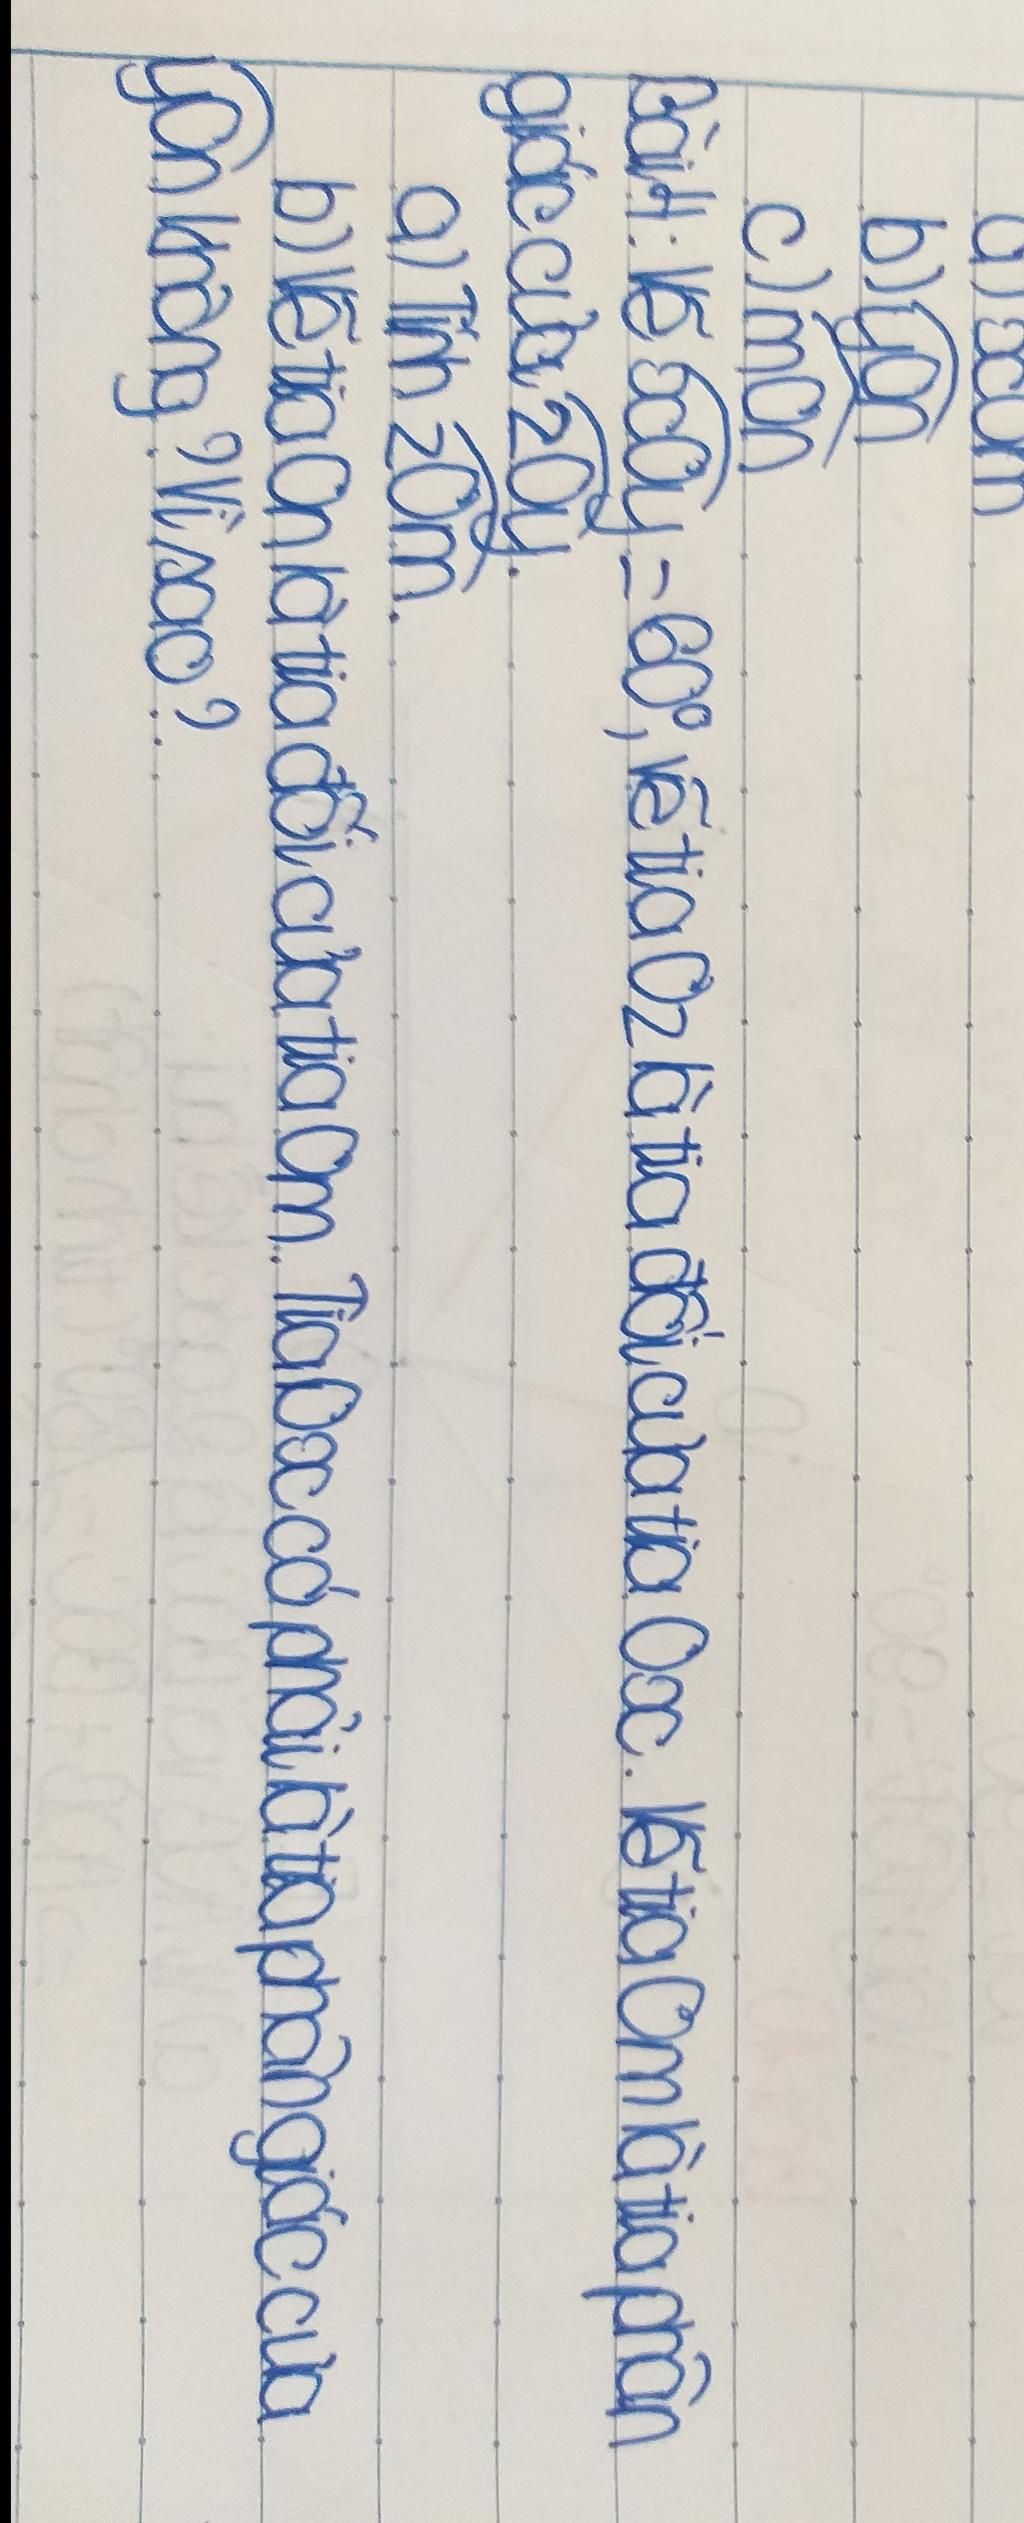 a) xOm
b) yOn
c) mOn
Bài 4: Vẽ xOy = 60°, vẽ tia Oz là tia đối của tia Ox. Vẽ tia Om là tia phân
giác của zOy.
a) Tính zOm.
b) Vẽ tia On là tia đối của tia Om. Tia Ox có phải là tia phân giác của
yOn không? Vì sao?